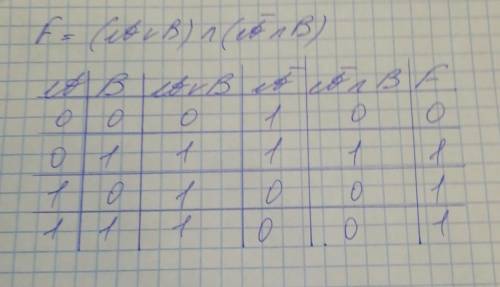 F = (A∨B)∧(A̅∧B)
A | B | A∨B | A̅ | A̅∧B | F
0 | 0 | 0 | 1 | 0 | 0
0 | 1 | 1 | 1 | 1 | 1
1 | 0 | 1 | 0 | 0 | 1
1 | 1 | 1 | 0 | 0 | 1